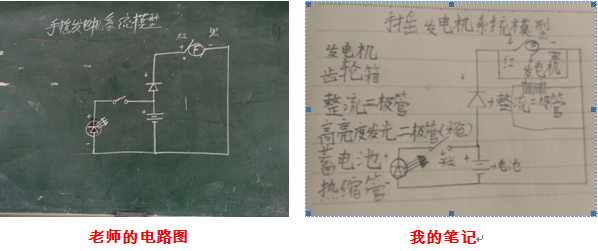 手摇发电机系统模型
红
黑
+
-
F
+
+
+
手摇发电机系统模型
+
-
红
黑
发电机
发电机
齿轮箱
整流二极管
整流二极管
高亮度发光二极管(手电)
蓄电池
开关
电池
热缩管
老师的电路图
我的笔记